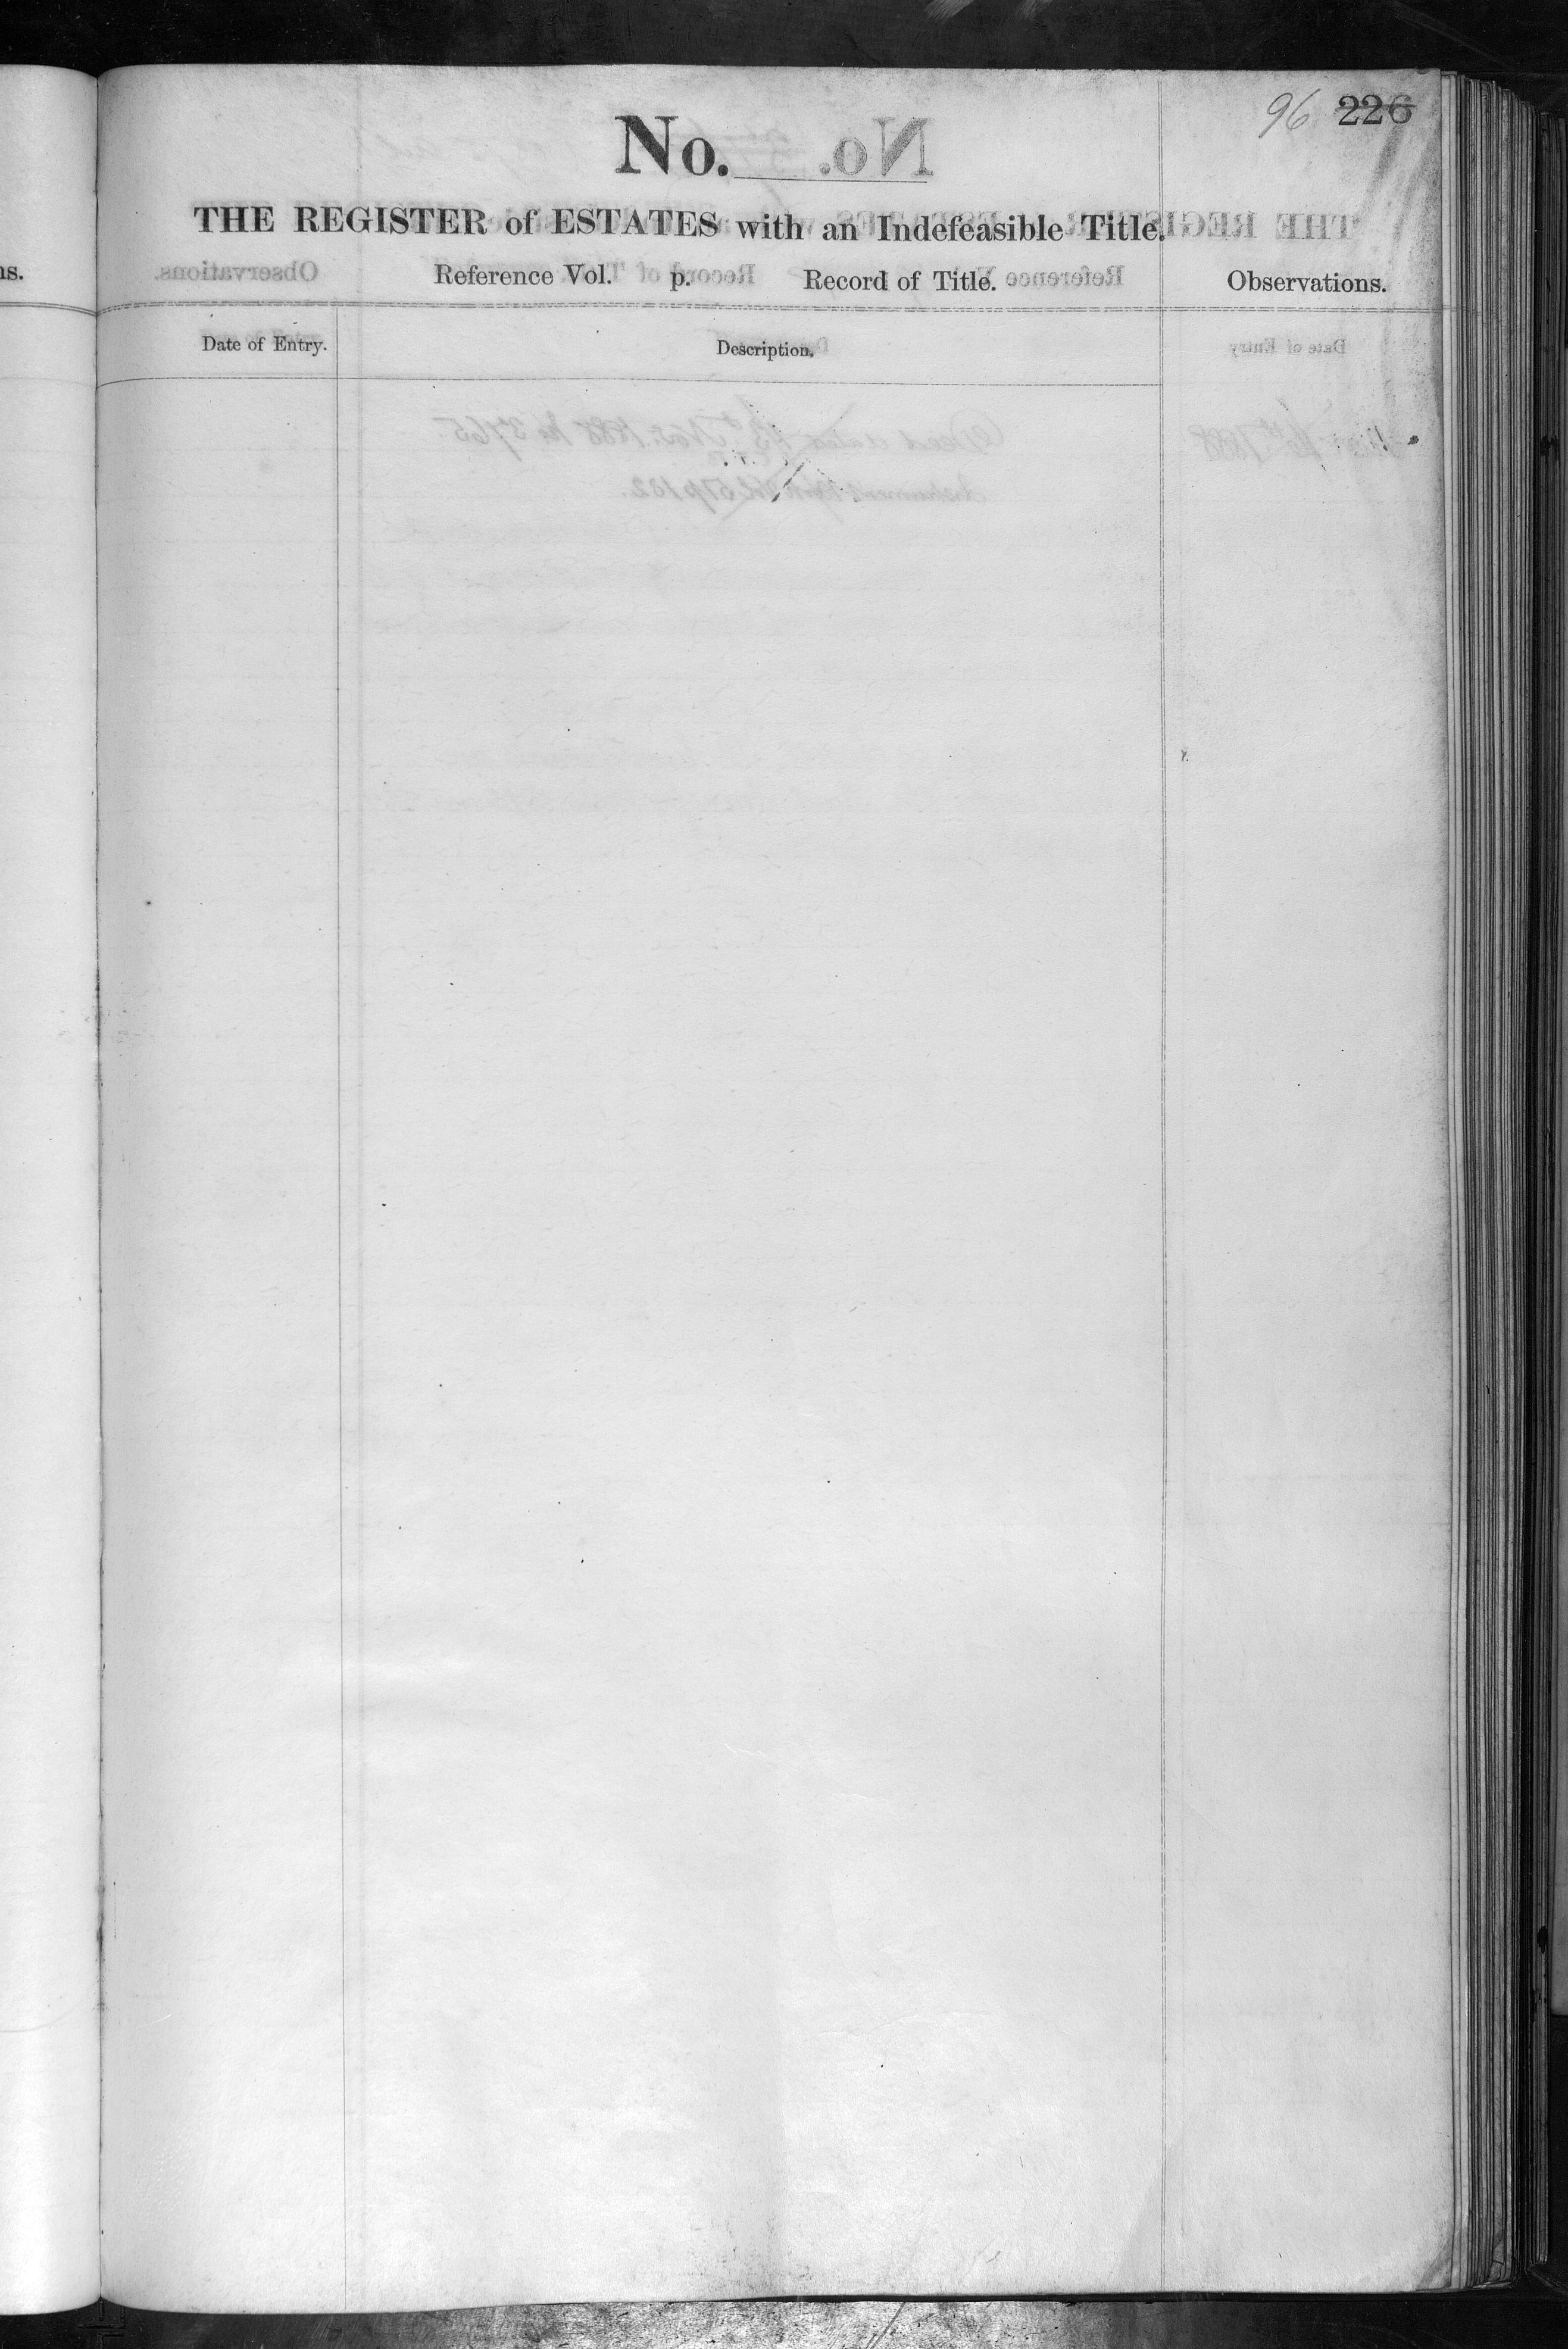 96 226
No.
THE REGISTER of ESTATES with an Indefeasible Title.
ns. Reference Vol. p. Record of Title. Observations.
Date of Entry. Description.